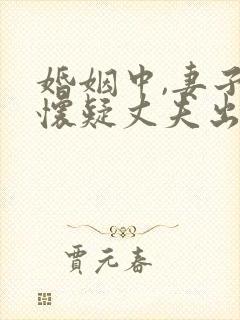 婚姻中,妻子
怀疑丈夫出
贾元春